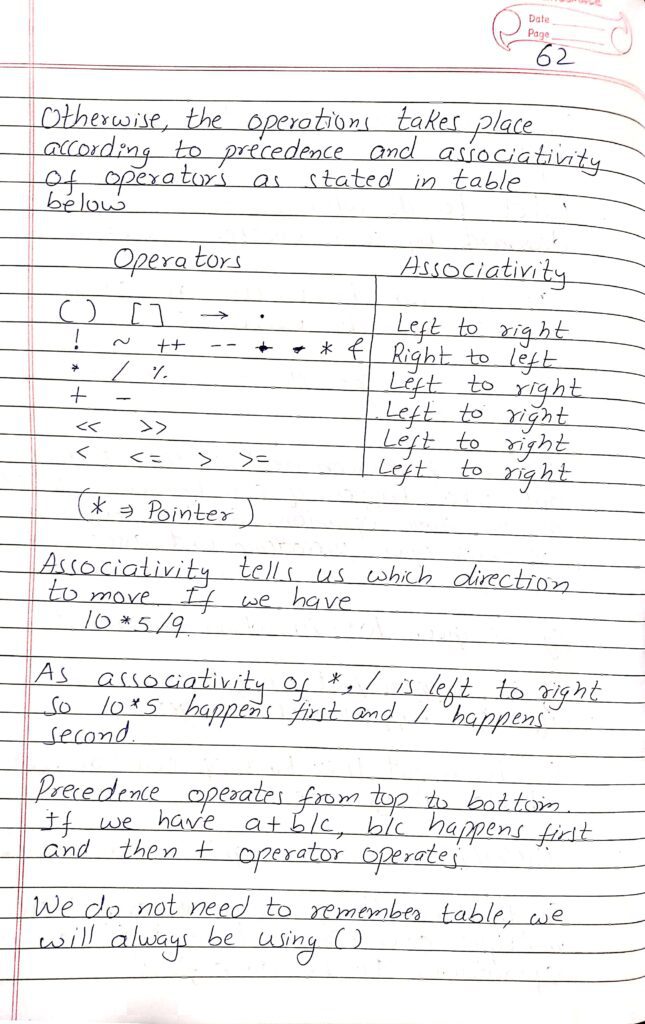 Date
Page
62
Otherwise, the operations takes place
according to precedence and associativity
of operators as stated in table
below
Operators Associativity
() [] → . Left to right
! ~ ++ -- + - * & Right to left
* / % Left to right
+ - Left to right
<< >> Left to right
< <= > >= Left to right
(* ⇒ Pointer)
Associativity tells us which direction
to move. If we have
10*5/9.
As associativity of *, / is left to right
so 10*5 happens first and / happens
second.
Precedence operates from top to bottom.
If we have a+b/c, b/c happens first
and then + operator operates.
We do not need to remember table, we
will always be using ()